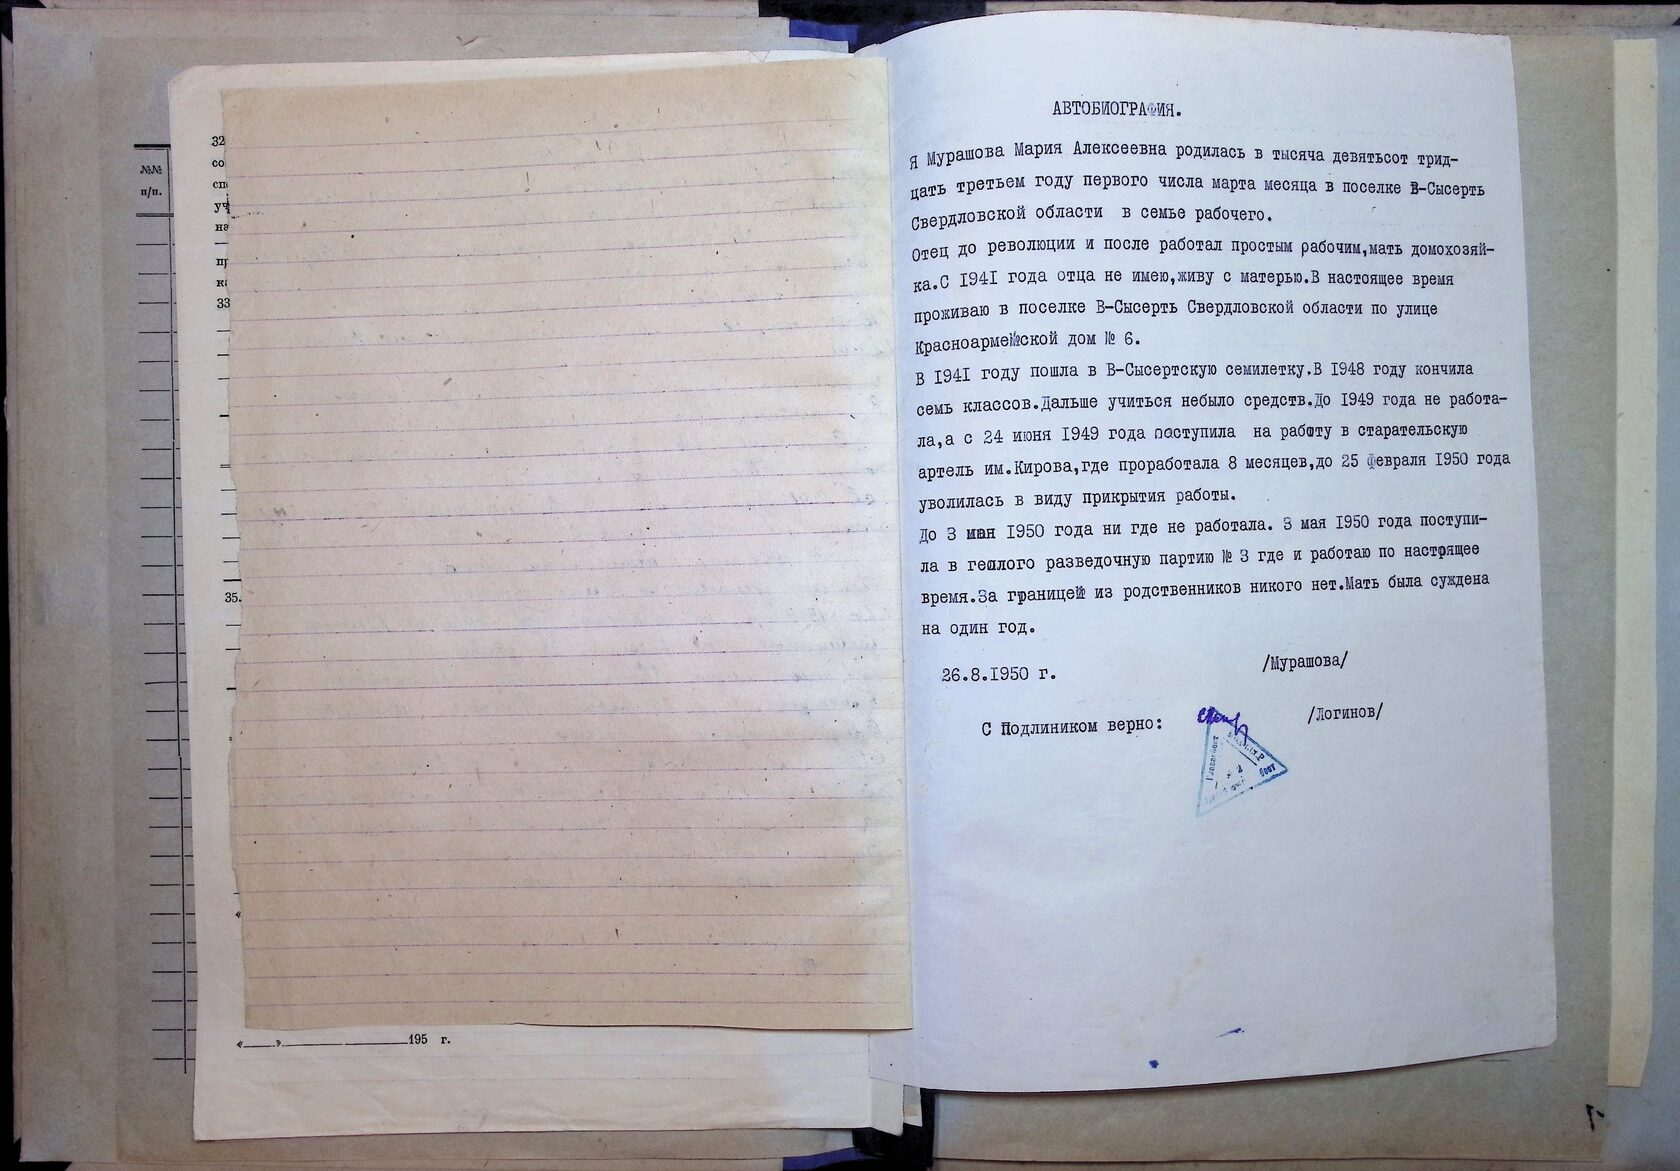 №№
п/п.
32
со
сп
уч
на
пр
к
33
35.
«
«___»___________195 г.
АВТОБИОГРАФИЯ.
Я Мурашова Мария Алексеевна родилась в тысяча девятьсот трид-
цать третьем году первого числа марта месяца в поселке В-Сысерть
Свердловской области в семье рабочего.
Отец до революции и после работал простым рабочим,мать домохозяй-
ка.С 1941 года отца не имею,живу с матерью.В настоящее время
проживаю в поселке В-Сысерть Свердловской области по улице
Красноармейской дом № 6.
В 1941 году пошла в В-Сысертскую семилетку.В 1948 году кончила
семь классов.Дальше учиться небыло средств.До 1949 года не работа-
ла,а с 24 июня 1949 года поступила на работу в старательскую
артель им.Кирова,где проработала 8 месяцев,до 25 февраля 1950 года
уволилась в виду прикрытия работы.
До 3 мая 1950 года ни где не работала. 3 мая 1950 года поступи-
ла в геолого разведочную партию № 3 где и работаю по настоящее
время.За границей из родственников никого нет.Мать была суждена
на один год.
26.8.1950 г. /Мурашова/
С Подлиником верно: /Логинов/